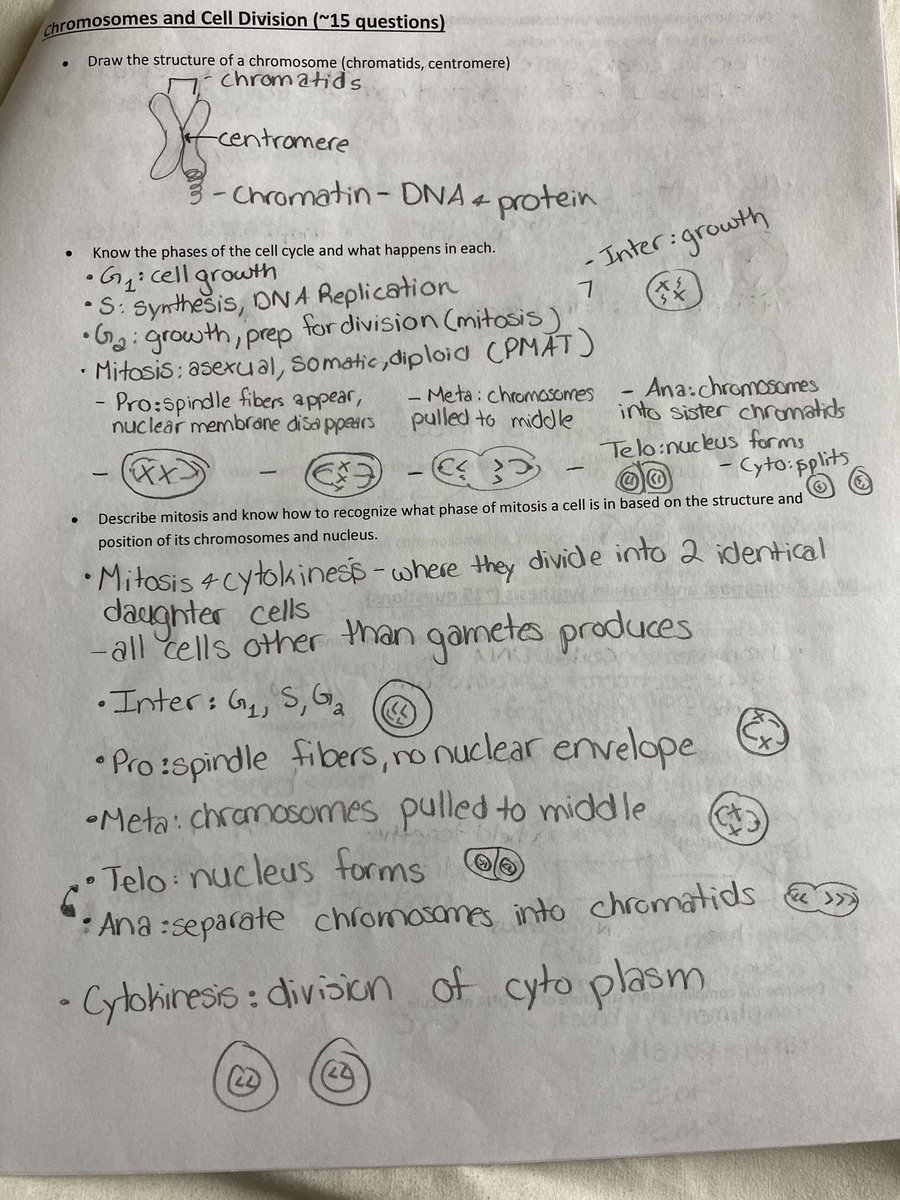 Chromosomes and Cell Division (~15 questions)
• Draw the structure of a chromosome (chromatids, centromere)
- chromatids
centromere
- Chromatin - DNA & protein
• Know the phases of the cell cycle and what happens in each.
- Inter: growth
• G1: cell growth
• S: synthesis, DNA Replication
• G2: growth, prep for division (mitosis)
• Mitosis: asexual, somatic, diploid (PMAT)
- Pro: spindle fibers appear,
nuclear membrane disappears
- Meta: chromosomes
pulled to middle
- Ana: chromosomes
into sister chromatids
Telo: nucleus forms
- Cyto: splits
• Describe mitosis and know how to recognize what phase of mitosis a cell is in based on the structure and
position of its chromosomes and nucleus.
• Mitosis & cytokiness - where they divide into 2 identical
daughter cells
- all cells other than gametes produces
• Inter: G1, S, G2
• Pro: spindle fibers, no nuclear envelope
• Meta: chromosomes pulled to middle
• Telo: nucleus forms
• Ana: separate chromosomes into chromatids
• Cytokinesis: division of cyto plasm